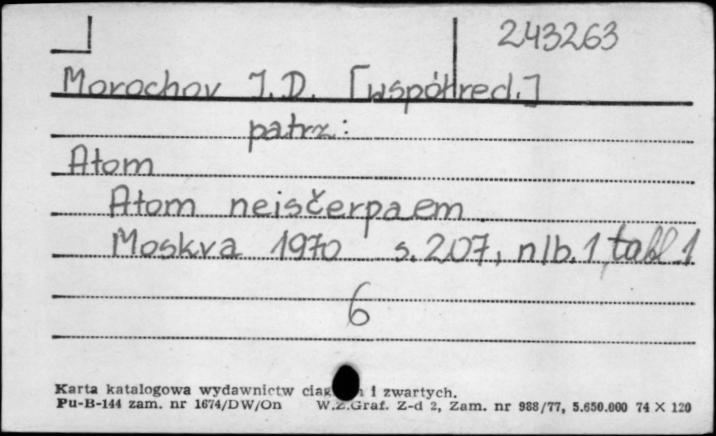 243263
Morochov I.D. [współred.]
patrz:
Atom
Atom neisčerpaem
Moskva 1970 s. 207, nlb. 1, tabl. 1
6
Karta katalogowa wydawnictw i zwartych.
Pu-B-144 zam. nr 1674/DW/On W.Z.Graf. Z-d 2, Zam. nr 988/77, 5.650.000 74 X 120